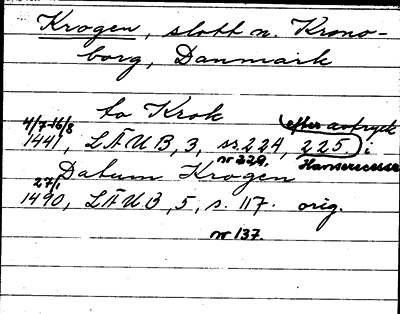 Krogen, slott n. Krono-
borg, Danmark
to Krok
4/7-16/8 efter avtryck
1441, LÄUB, 3, ss. 224, 225 i
nr 329. Hanserecesse
Datum Krogen
27/1
1490, LÄUB, 5, s. 117. orig.
nr 137.